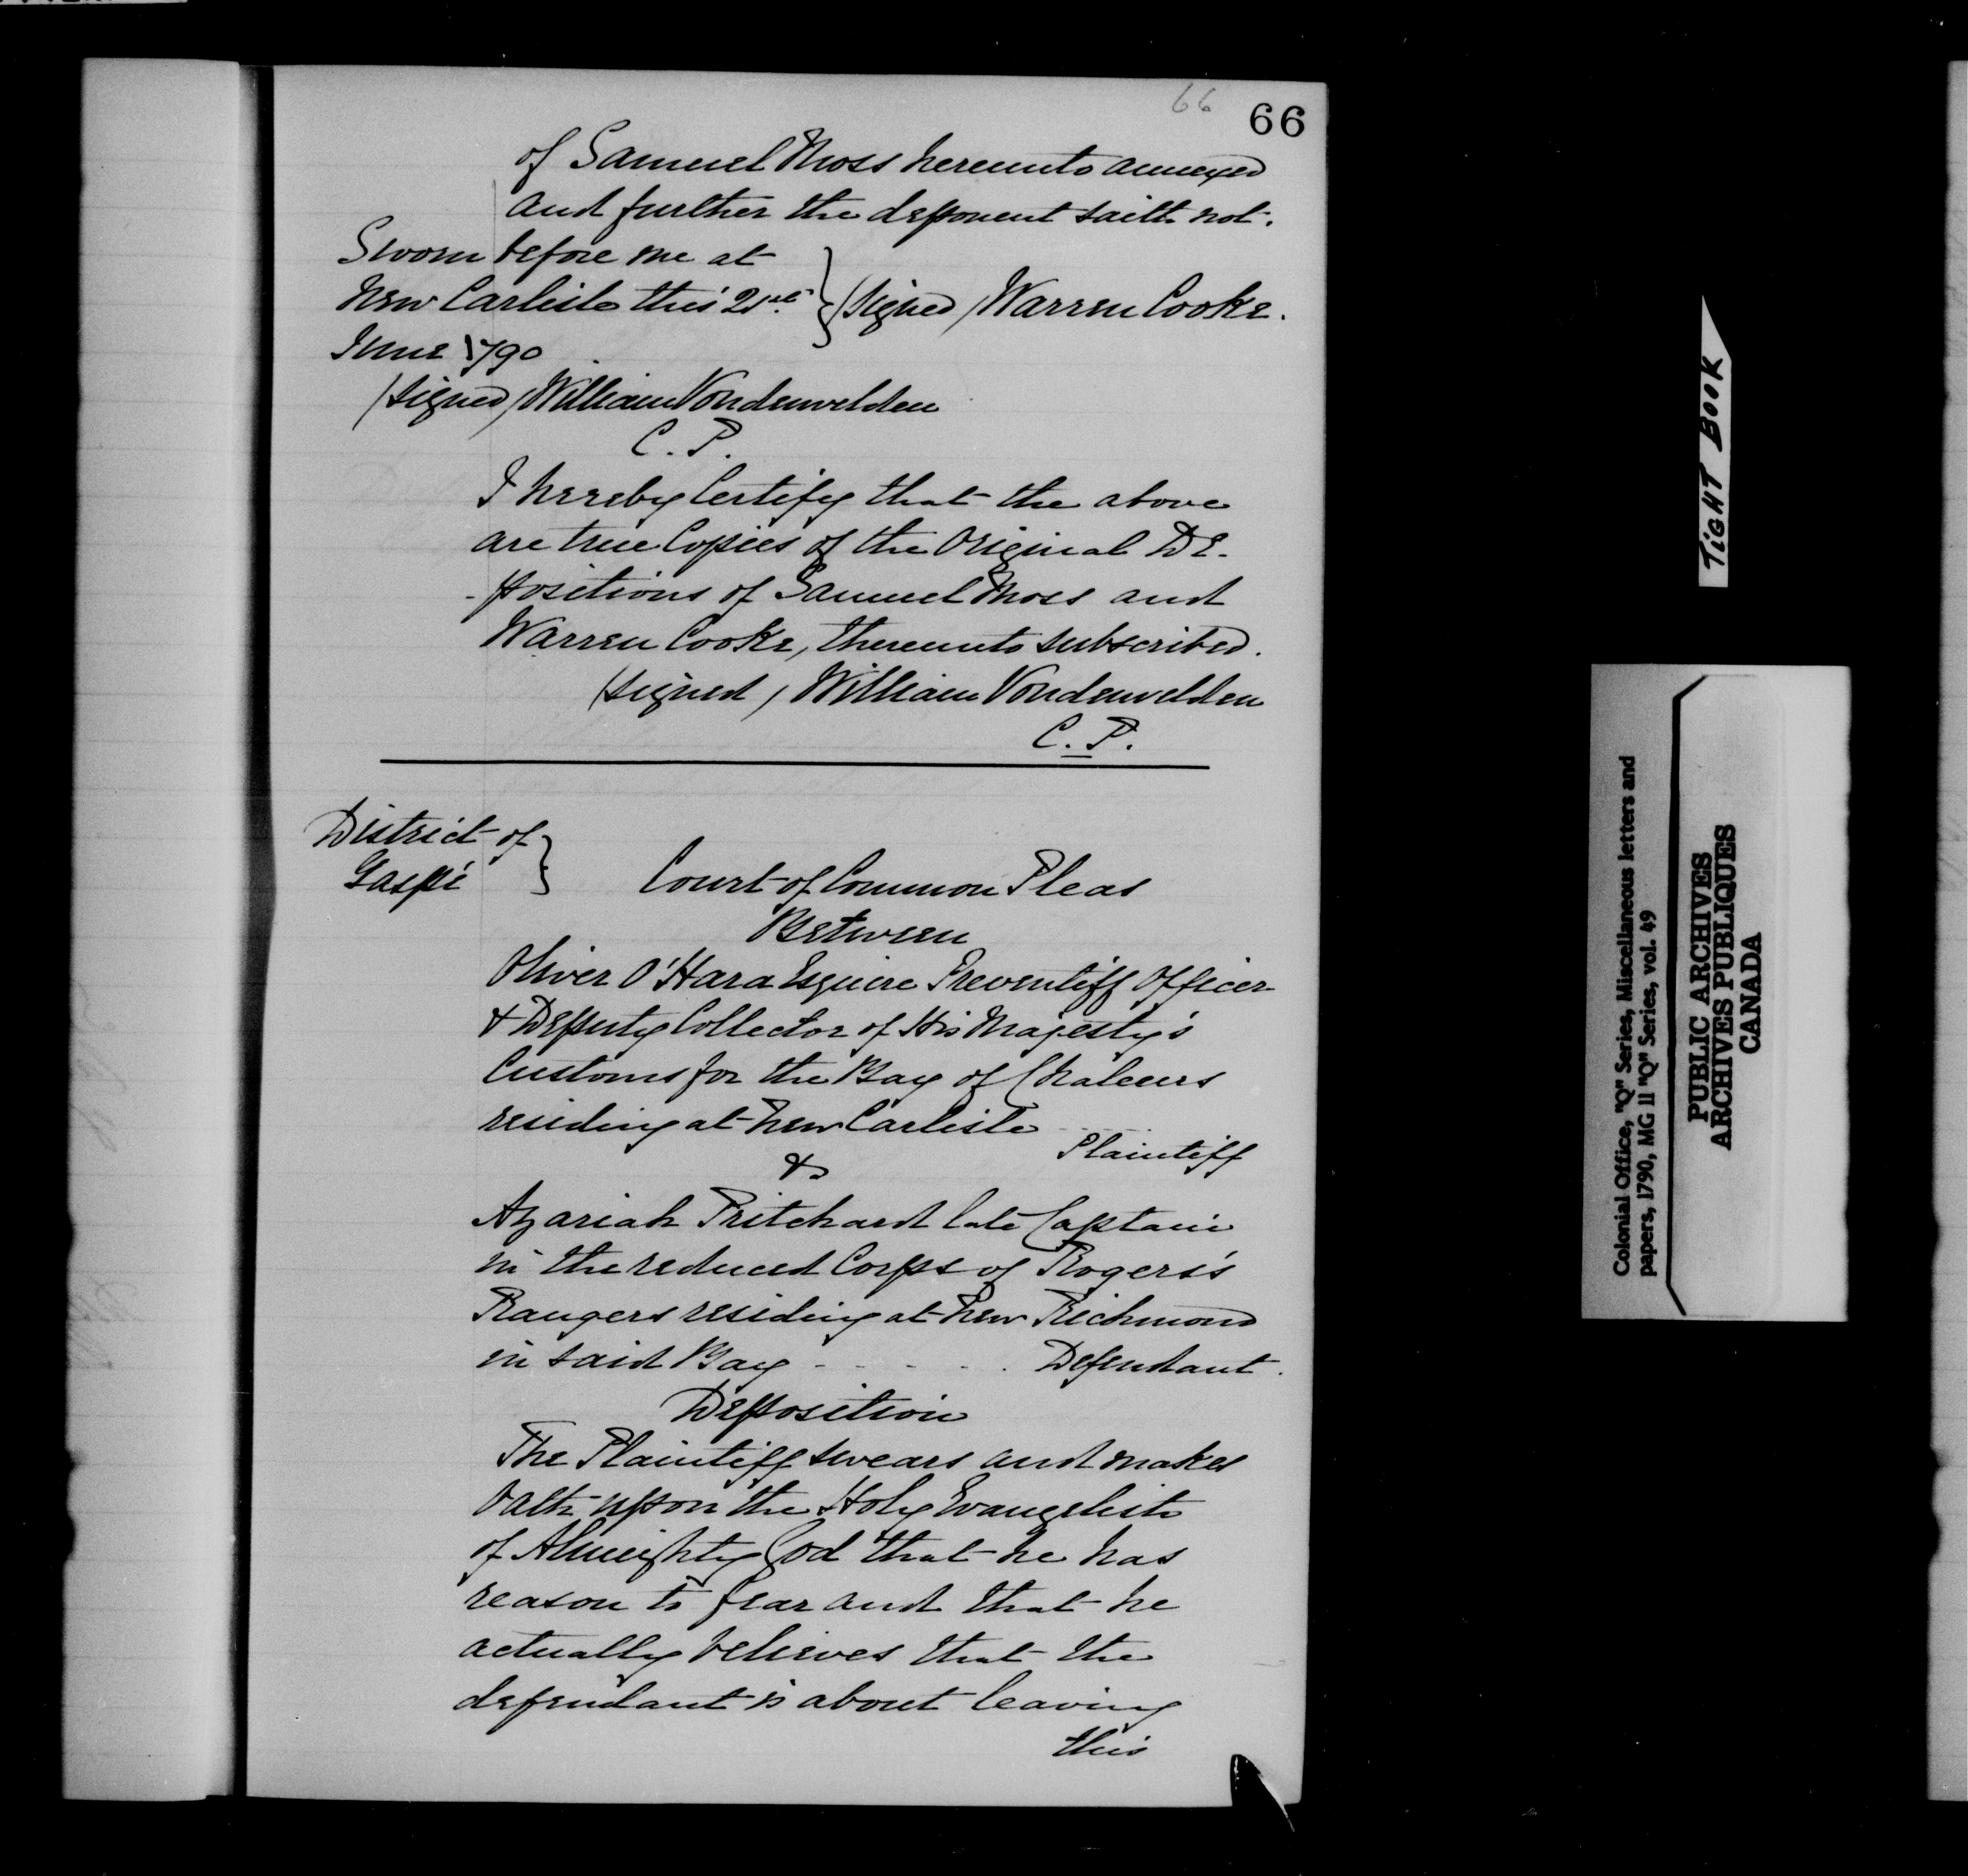 66 66
of Samuel Moss hereunto annexed
and further the deponent saith not.
Sworn before me at
New Carlisle this 21st. } (signed) Warren Cooke.
June 1790
(signed) William Vondenvelden
C. P.
I hereby Certify that the above
are true Copies of the Original De-
-positions of Samuel Moss and
Warren Cooke, thereunto subscribed.
(signed) William Vondenvelden
C. P.
District of
Gaspé } Court of Common Pleas
Between
Oliver O'Hara Esquire Preventiff Officer
& Deputy Collector of His Majesty's
Customs for the Bay of Chaleurs
residing at New Carlisle ....
Plaintiff
&
Azariah Pritchard late Captain
in the reduced Corps of Rogers's
Rangers residing at New Richmond
in said Bay - - - - - . Defendant.
Deposition
The Plaintiff swears and makes
Oath upon the Holy Evangelists
of Almighty God that he has
reason to fear and that he
actually believes that the
defendant is about leaving
this
TIGHT BOOK
Colonial Office, "Q" Series, Miscellaneous letters and
papers, 1790, MG 11 "Q" Series, vol. 49
PUBLIC ARCHIVES
ARCHIVES PUBLIQUES
CANADA